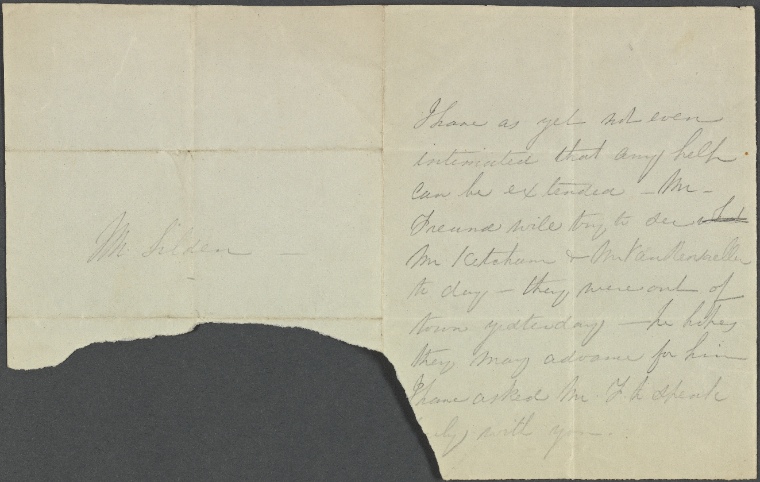 Mr Tilden —
I have as yet not even
intimated that any help
can be extended — Mr —
Freund will try to see
Mr Ketcham & Mr Van Rensseller
to day — they were out of
town yesterday — he hopes
they may advance for him
I have asked Mr F. to speak
with you.